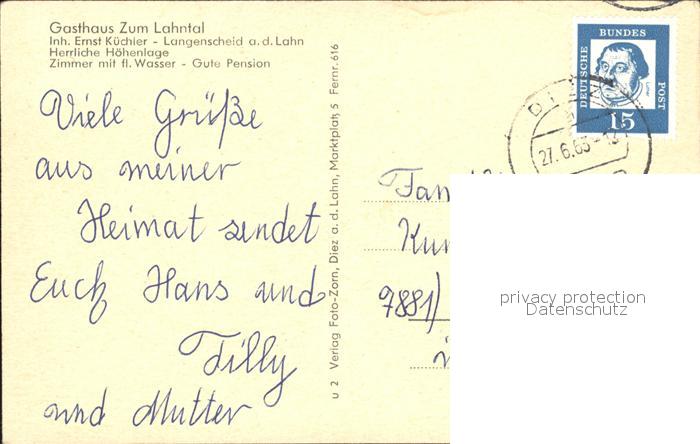 Gasthaus Zum Lahntal
Inh. Ernst Küchler - Langenscheid a. d. Lahn
Herrliche Höhenlage
Zimmer mit fl. Wasser - Gute Pension
Viele Grüße
aus meiner
Heimat sendet
Euch Hans und
Tilly
und Mutter
u 2 Verlag Foto-Zorn, Diez a. d. Lahn, Marktplatz 5 Fernr. 616
DEUTSCHE
BUNDES
POST
Luther
15
27.6.63
privacy protection
Datenschutz